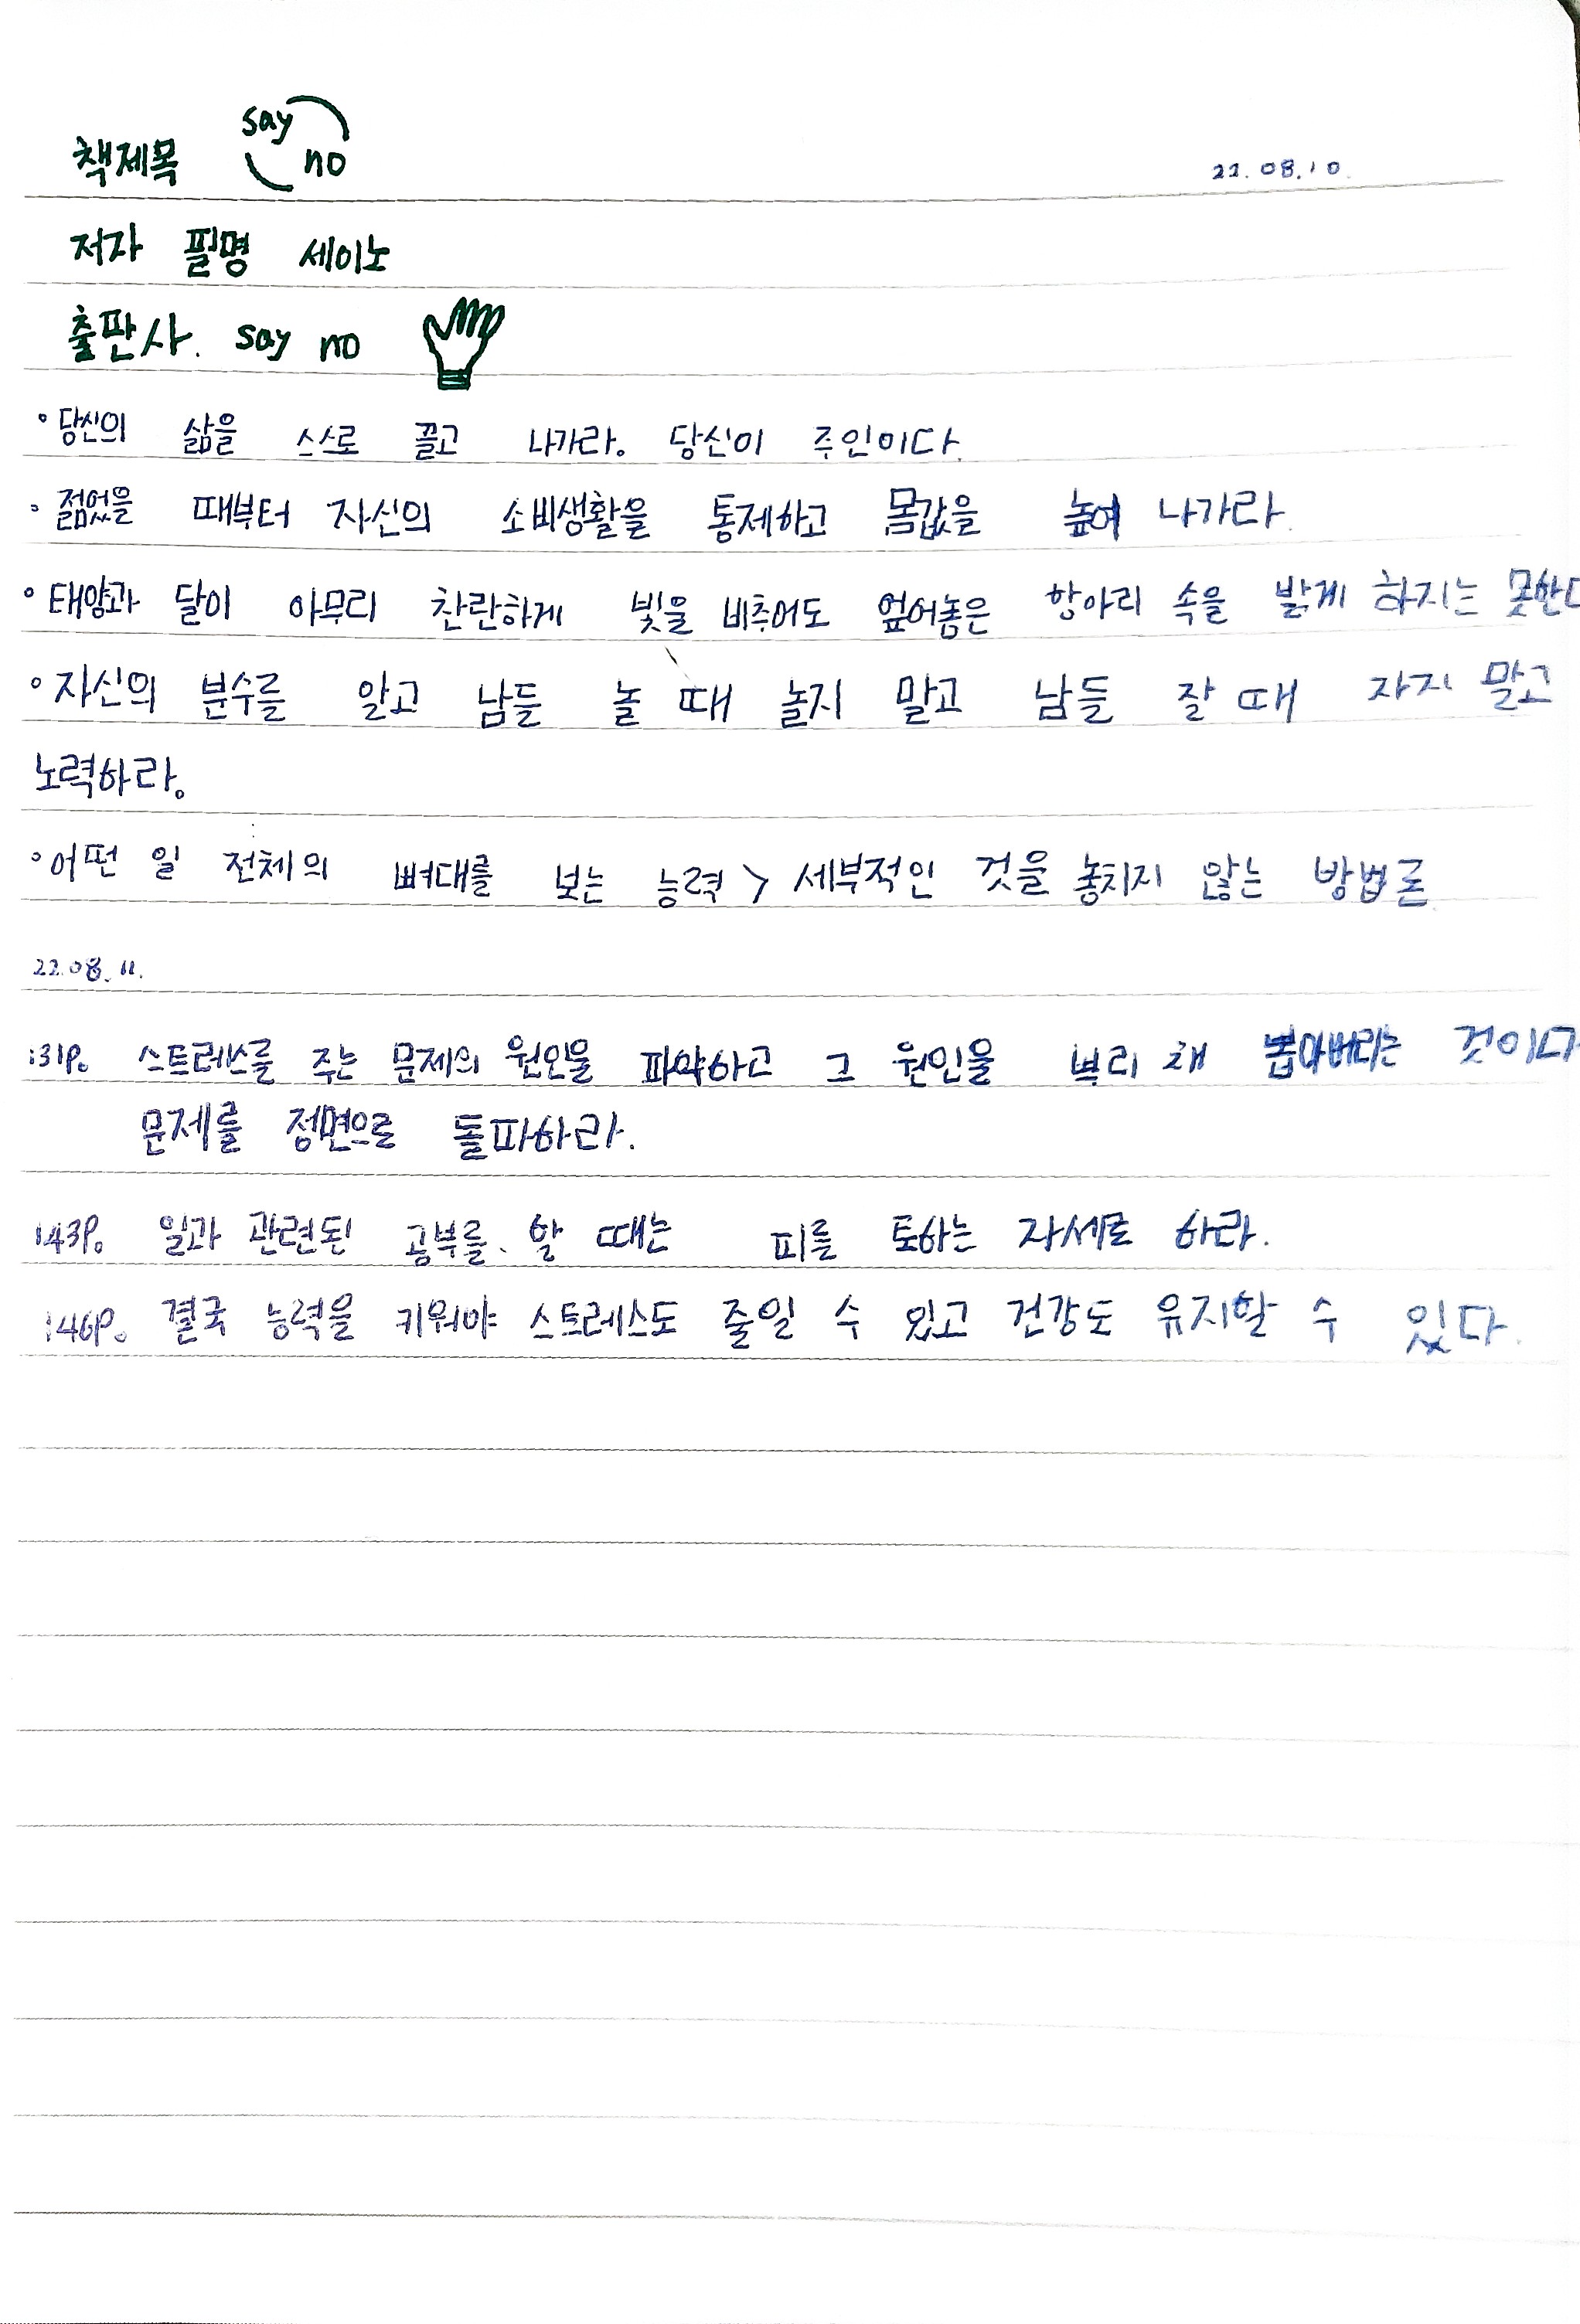 책제목 say no 22.08.10.
저자 필명 세이노
출판사. say no
◦당신의 삶을 스스로 끌고 나가라. 당신이 주인이다.
◦젊었을 때부터 자신의 소비생활을 통제하고 몸값을 높여 나가라.
◦태양과 달이 아무리 찬란하게 빛을 비추어도 엎어놓은 항아리 속을 밝게 하지는 못한다
◦자신의 분수를 알고 남들 놀 때 놀지 말고 남들 잘 때 자지 말고
노력하라.
◦어떤 일 전체의 뼈대를 보는 능력 > 세부적인 것을 놓치지 않는 방법론
22.08.11.
131p. 스트레스를 주는 문제의 원인을 파악하고 그 원인을 뿌리 채 뽑아버리는 것이다
문제를 정면으로 돌파하라.
143p. 일과 관련된 공부를 할 때는 피를 토하는 자세로 하라.
146p. 결국 능력을 키워야 스트레스도 줄일 수 있고 건강도 유지할 수 있다.